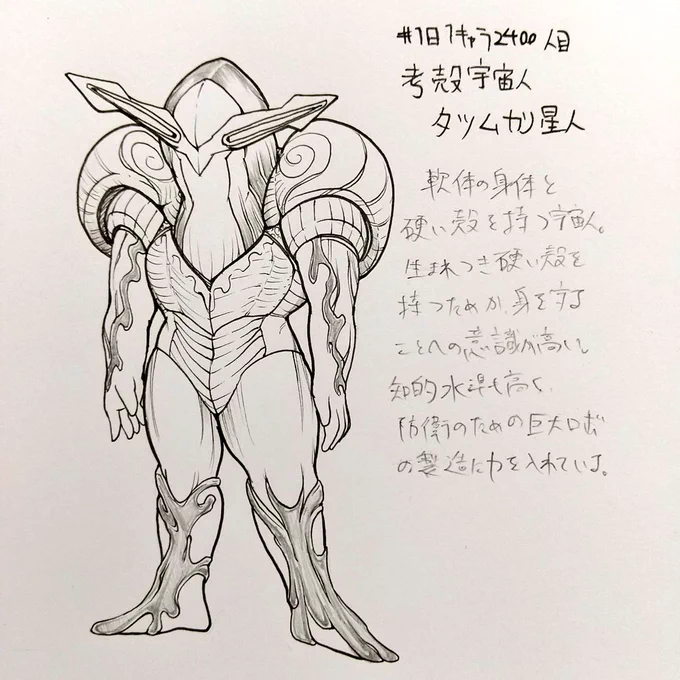 #1日1キャラ2400人目
考殻宇宙人
タツムカリ星人
軟体の身体と
硬い殻を持つ宇宙人。
生まれつき硬い殻を
持つためか、身を守る
ことへの意識が高い。
知的水準も高く、
防衛のための巨大ロボ
の製造に力を入れている。